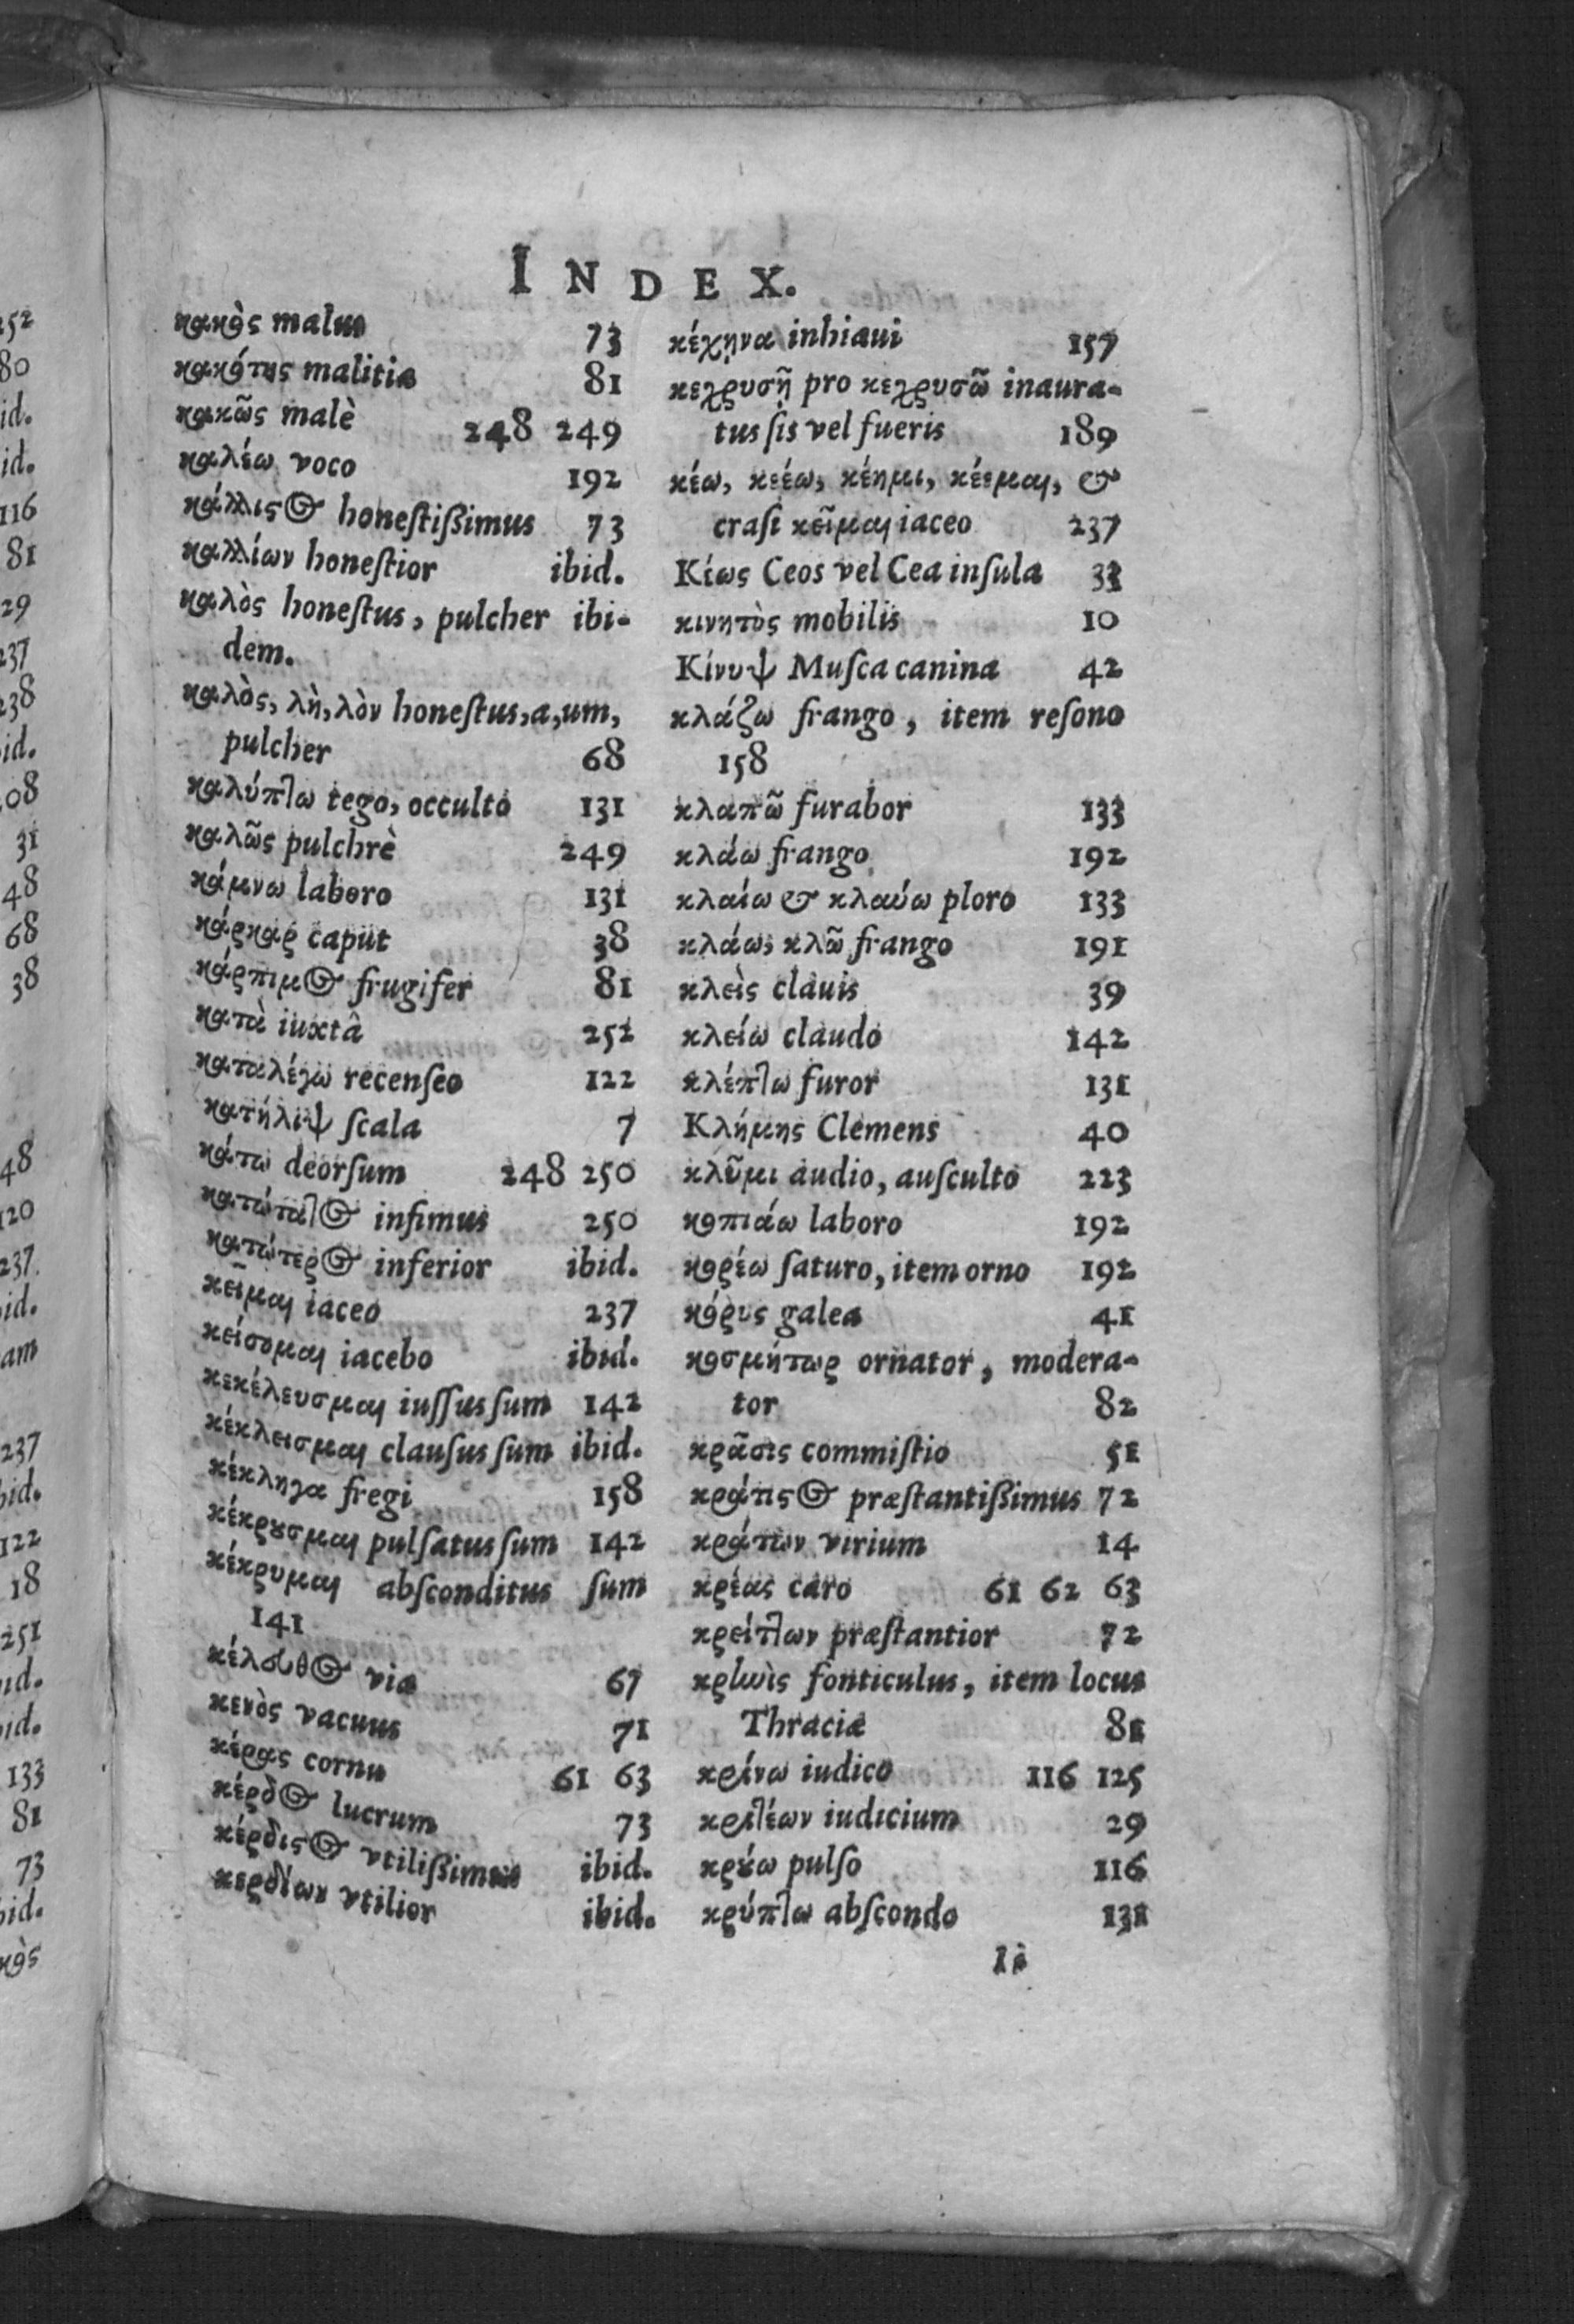 INDEX.
κακὸς malus 73
κακότης malitia 81
κακῶς malè 248 249
καλέω voco 192
κάλλιςος honeſtißimus 73
καλλίων honeſtior ibid.
καλὸς honeſtus, pulcher ibi-
dem.
καλὸς, λὴ, λὸν honeſtus, a, um,
pulcher 68
καλύπτω tego, occulto 131
καλῶς pulchrè 249
κάμνω laboro 131
κάρκαρ caput 38
κάρπιμος frugifer 81
κατὰ iuxtâ 252
καταλέγω recenſeo 122
κατήλιψ ſcala 7
κάτω deorſum 248 250
κατώτατος infimus 250
κατώτερος inferior ibid.
κεῖμαι iaceo 237
κείσομαι iacebo ibid.
κεκέλευσμαι iuſſus ſum 142
κέκλεισμαι clauſus ſum ibid.
κέκληγα fregi 158
κέκρȣσμαι pulſatus ſum 142
κέκρυμαι abſconditus ſum
141
κέλευθος via 67
κενὸς vacuus 71
κέρας cornu 61 63
κέρδος lucrum 73
κέρδιςος vtilißimus ibid.
κερδίων vtilior ibid.
κέχηνα inhiaui 157
κεχρυσῇ pro κεχρυσῶ inaura-
tus ſis vel fueris 189
κέω, κεέω, κέημι, κέεμαι, &
craſi κεῖμαι iaceo 237
Κέως Ceos vel Cea inſula 33
κινητὸς mobilis 10
Κίνυψ Muſca canina 42
κλάζω frango, item reſono
158
κλαπῶ furabor 133
κλάω frango 192
κλαίω & κλαύω ploro 133
κλάω, κλῶ frango 191
κλεὶς clauis 39
κλείω claudo 142
κλέπτω furor 131
Κλήμης Clemens 40
κλῦμι audio, auſculto 223
κοπιάω laboro 192
κορέω ſaturo, item orno 192
κόρυς galea 41
κοσμήτωρ ornator, modera-
tor 82
κρᾶσις commiſtio 51
κράτιςος præſtantißimus 72
κράτων virium 14
κρέας caro 61 62 63
κρείττων præſtantior 72
κρηνὶς fonticulus, item locus
Thraciæ 81
κρίνω iudico 116 125
κριτέων iudicium 29
κρȣω pulſo 116
κρύπτω abſcondo 131